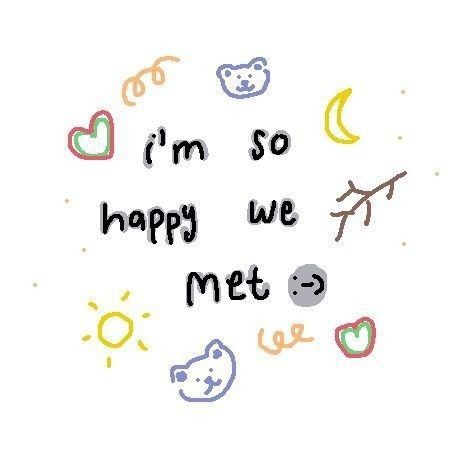 i'm so
happy we
met :-)